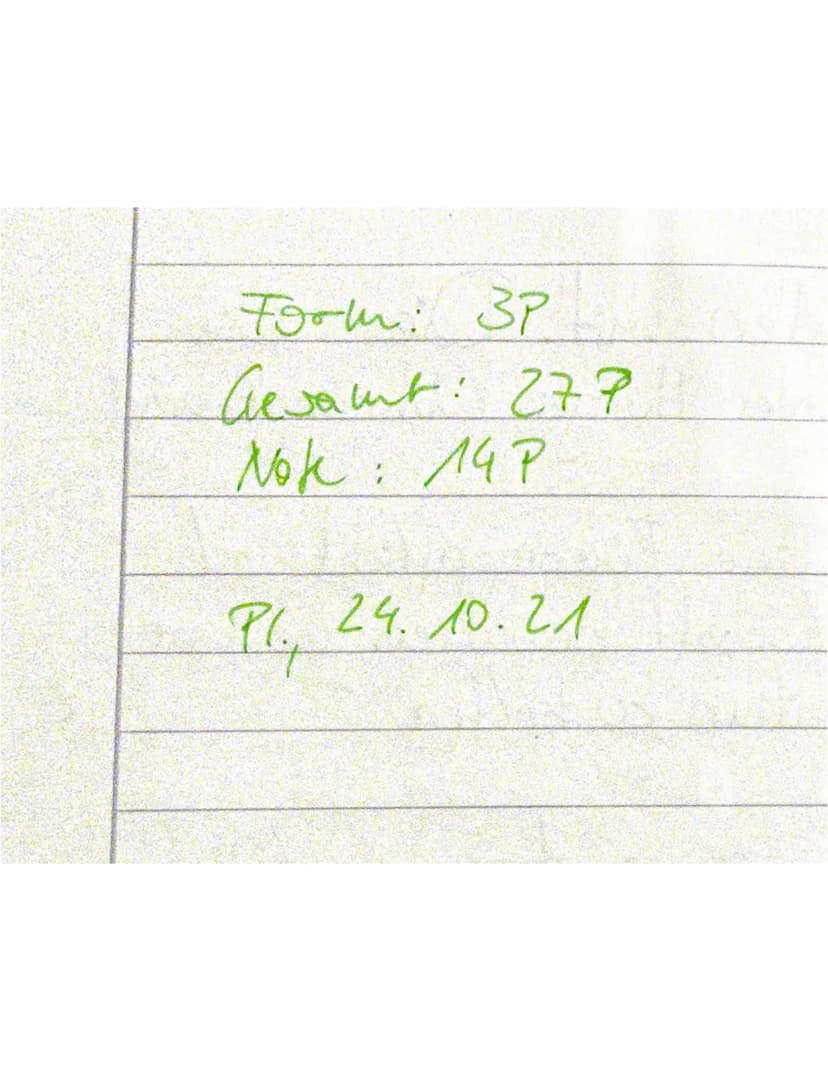 Form: 3P
Gesamt: 27P
Note: 14P
Pl., 24.10.21